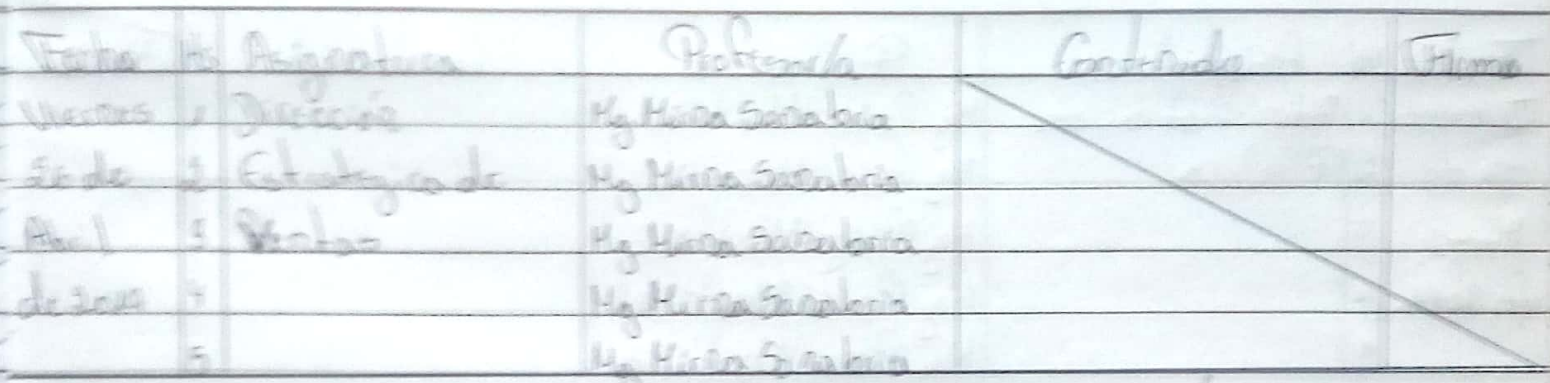 Fecha Hs Asignatura Profesor/a Contenido Firma
Viernes 1 Dirección Mg Mirna Sanabria
de 2 Estrategica de Mg Mirna Sanabria
Abril 3 Ventas Mg Mirna Sanabria
de 4 Mg Mirna Sanabria
5 Mg Mirna Sanabria